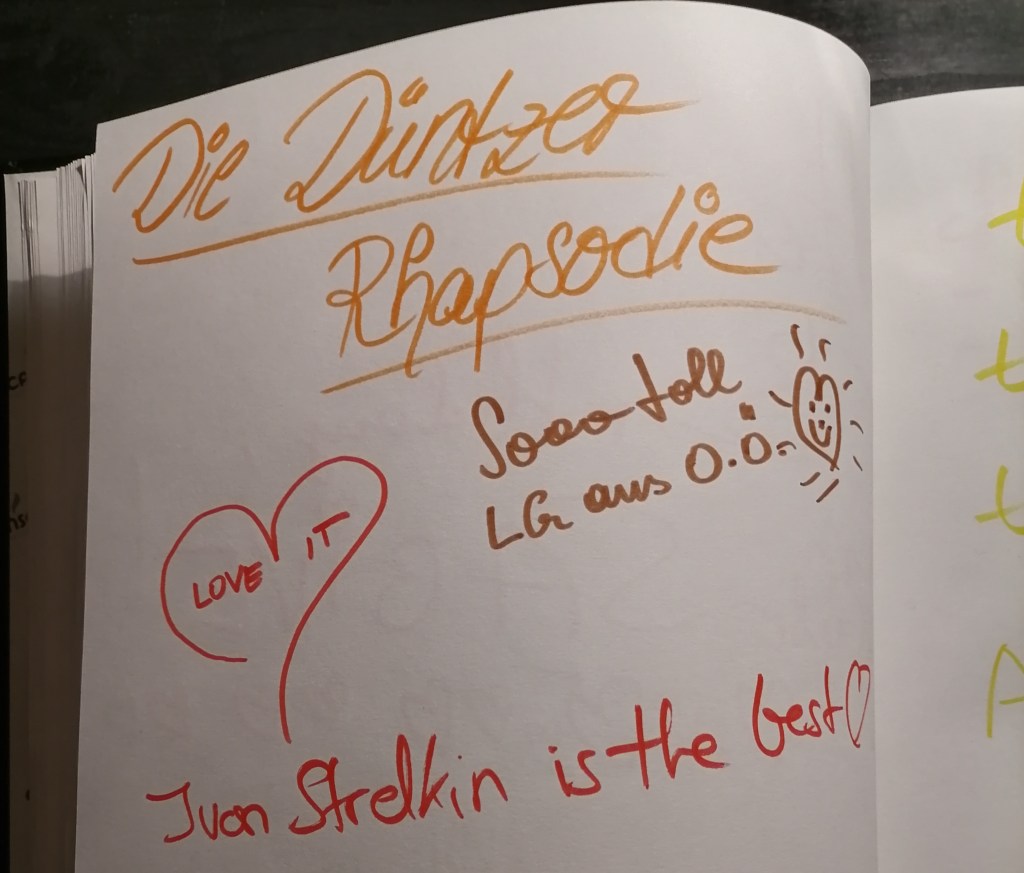 Die Düntzer
Rhapsodie
Sooo toll
LG aus O.Ö.
LOVE IT
Ivan Strelkin is the best